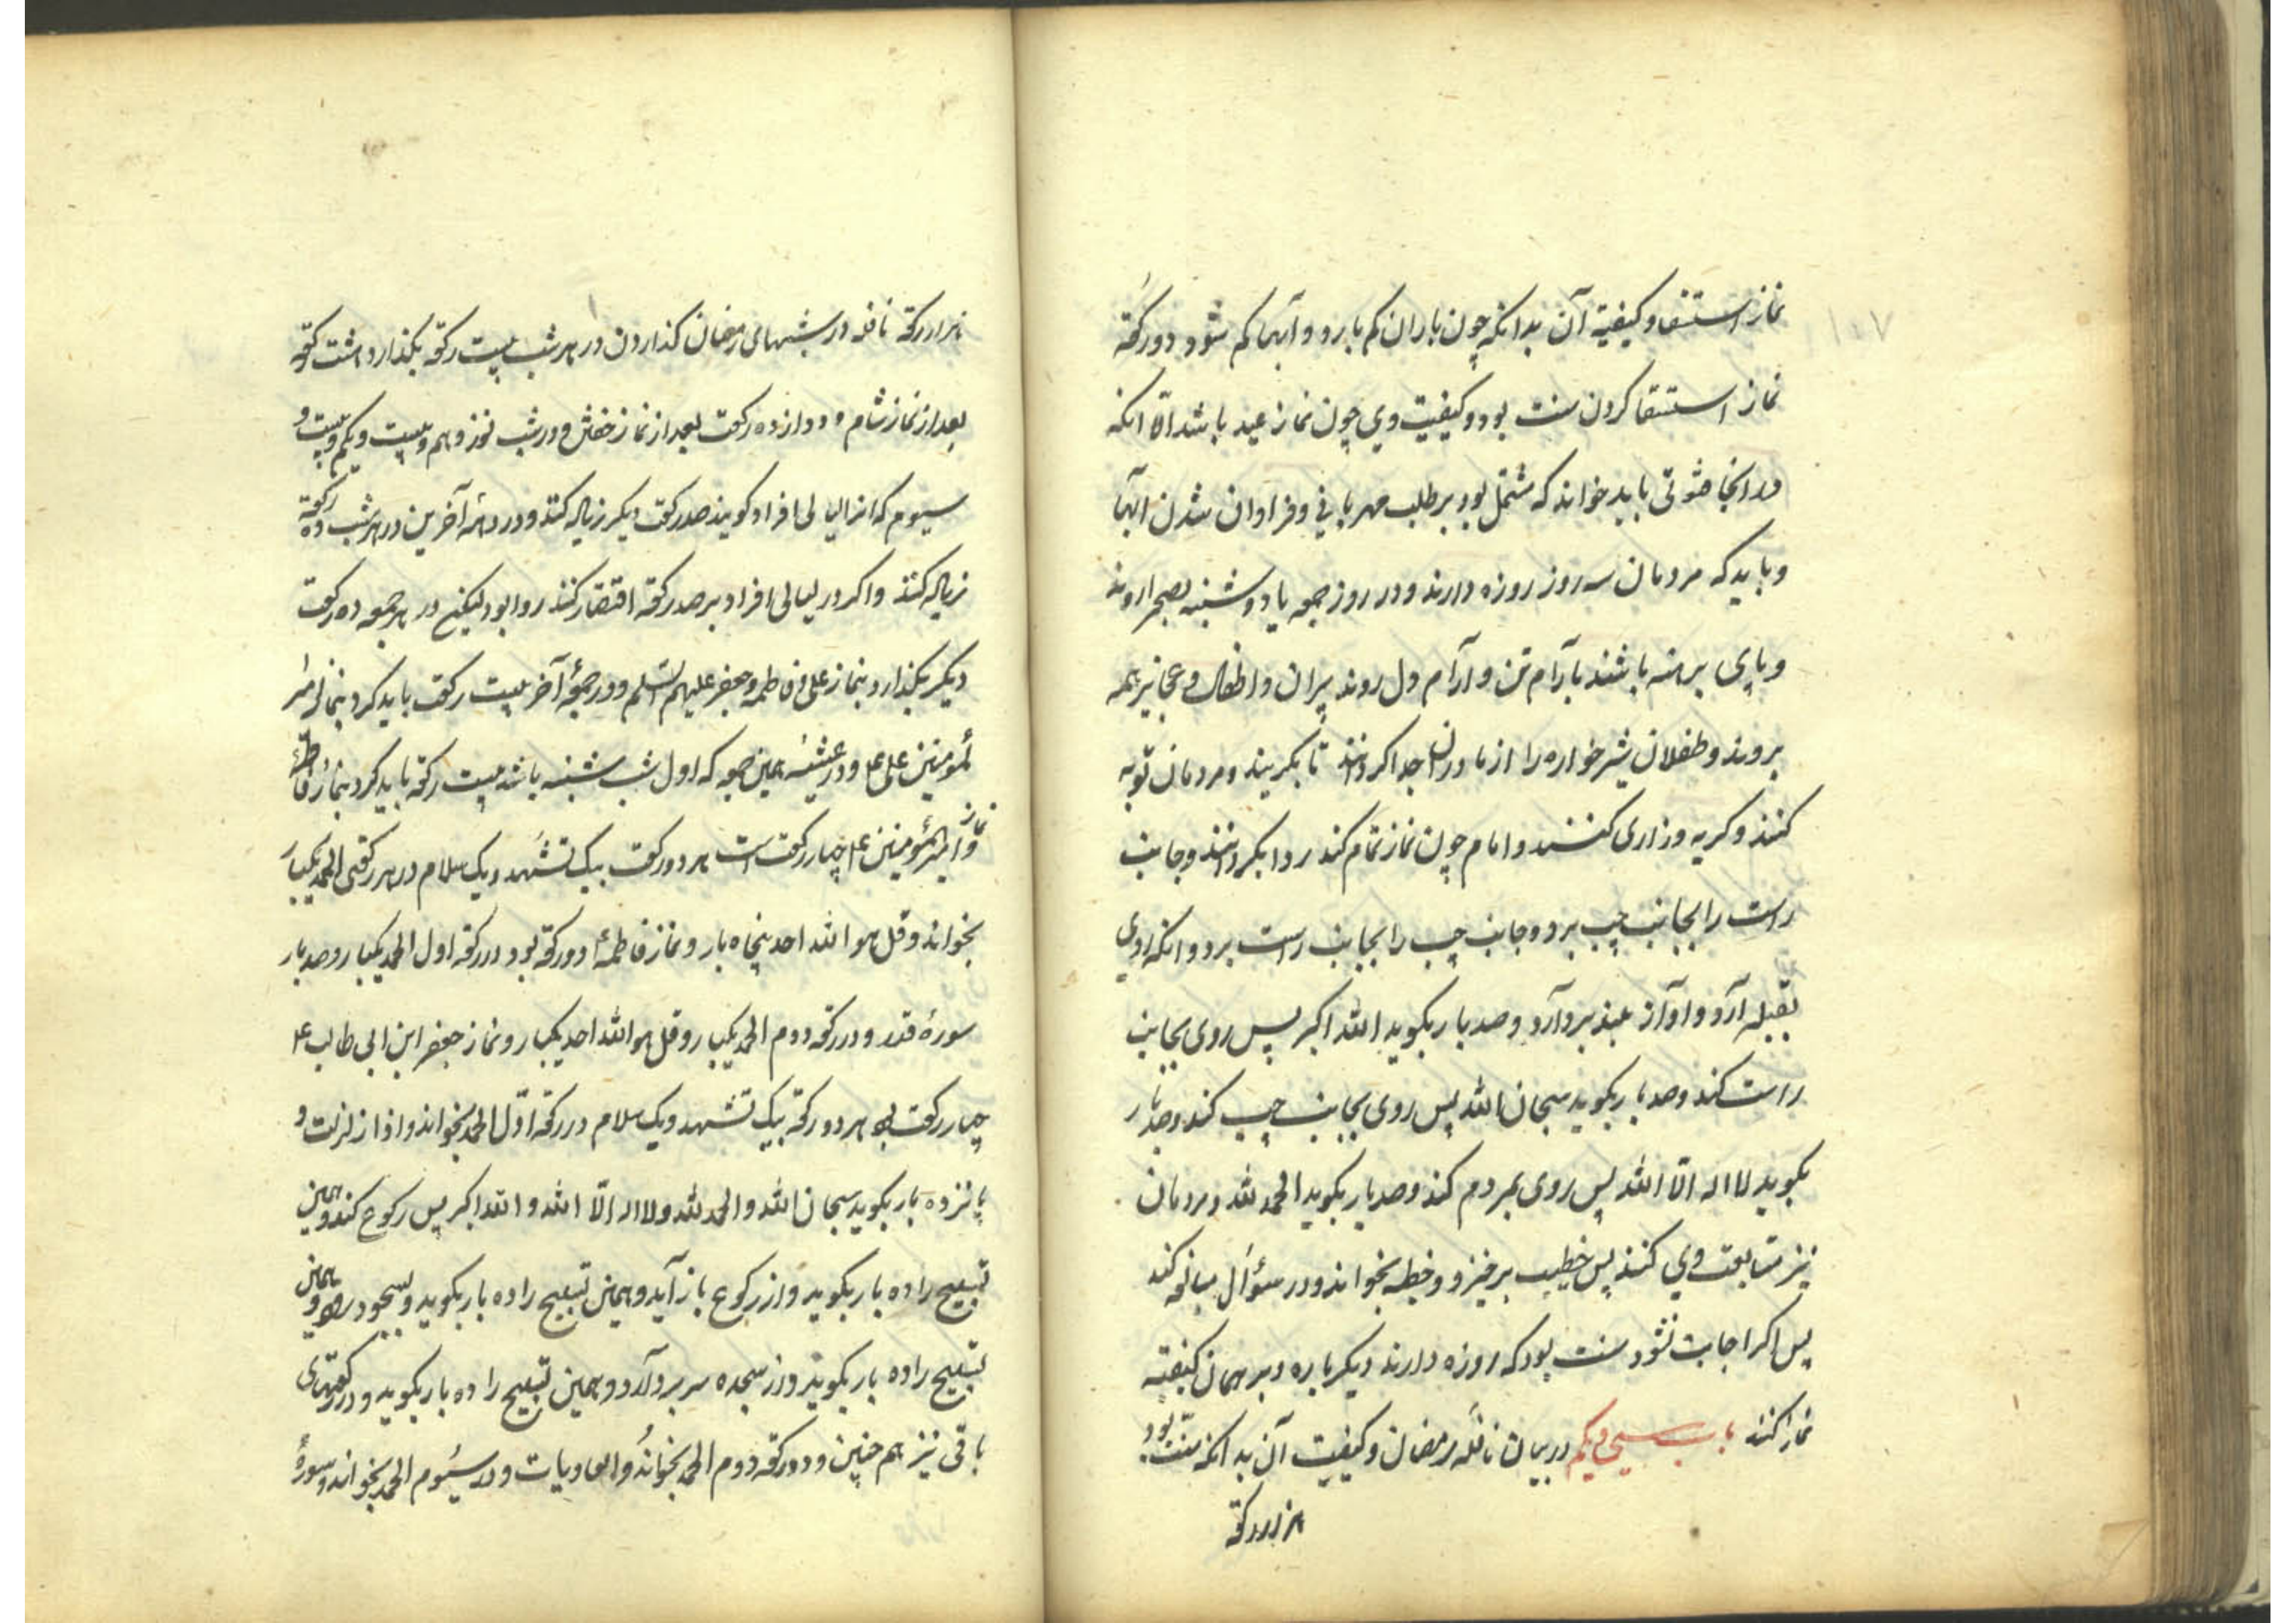 ۱۰۷
نماز استسقا و کیفیة آن بدانکه چون باران کم بارد و آبها کم شود دو رکعة
نماز استسقا کردن سنت بود و کیفیت وی چون نماز عید باشد الّا انکه
در انجا قنوتی باید خواند که مشتمل بود بر طلب مهربانی و فراوان شدن ابها
و باید که مردمان سه روز روزه دارند و در روز جمعه یا دوشنبه بصحرا روند
و پای برهنه باشند بآرام تن و آرام دل روند پیران و اطفال و عجایز همه
بروند و طفلان شیر خواره را از مادران جدا کردانند تا بکریند و مردمان توبه
کنند و کریه و زاری کنند و امام چون نماز تمام کند ردا بکرداند و جانب
راست را بجانب چپ برد و جانب چپ را بجانب راست برد و انکه روی
بقبله آرد و اواز بلند بردآرد و صد بار بکوید الله اکبر پس روی بجانب
راست کند و صد بار بکوید سبحان الله پس روی بجانب چپ کند و صد بار
بکوید لا اله الّا الله پس روی بمردم کند و صد بار بکوید الحمد لله و مردمان
نیز متابعت وی کنند پس خطیب برخیزد و خطبه بخواند و در سؤال مبالغه کند
پس اکر اجابت نشود سنت بود که روزه دارند دیکر باره و بر همان کیفیة
نماز کنند باب سی و یکم در بیان نافله رمضان و کیفیت آن بدانکه سنت بود
هزار رکعة
هزار رکعة نافله در شبهای رمضان کذاردن در هر شب بیست رکعة بکذارد هشت رکعة
بعد از نماز شام و دوازده رکعت بعد از نماز خفتن و در شب نوزدهم و بیست و یکم و بیست و
سیوم که انرا لیالی افراد کویند صد رکعت دیکر زیاده کنند و در دهۀ آخرین در هر شب ده رکعة
زیاده کنند و اکر در لیالی افراد بر صد رکعة اقتصار کنند روا بود لیکن در هر جمعه ده رکعت
دیکر بکذارد بنماز علی و فاطمه و جعفر علیهم السّلم و در جمعۀ آخر بیست رکعت باید کرد بنماز امیر
المؤمنین علی ع و در عشیۀ همین جمعه که اول شب شنبه باشد بیست رکعة باید کرد بنماز فاطمۀ
و نماز امیر المؤمنین ع چهار رکعت است هر دو رکعت بیک تشهد و یک سلام در هر رکعتی الحمد یکبار
بخواند و قل هو الله احد پنجاه بار و نماز فاطمه ع دو رکعة بود در رکعة اول الحمد یکبار و صد بار
سورۀ قدر و در رکعة دوم الحمد یکبار و قل هو الله احد یکبار و نماز جعفر ابن ابی طالب ع
چهار رکعت بود هر دو رکعة بیک تشهد و یک سلام در رکعة اوّل الحمد بخواند و اذا زلزلت و
پانزده بار بکوید سبحان الله و الحمد لله و لا اله الّا الله و الله اکبر پس رکوع کند و همین
تسبیح را ده بار بکوید و از رکوع باز آید و همین تسبیح را ده بار بکوید و بسجود رود و همین
تسبیح را ده بار بکوید و از سجده سر بردآرد و همین تسبیح را ده بار بکوید و در رکعتهای
باقی نیز هم چنین و در رکعة دوم الحمد بخواند و العادیات و در سیوم الحمد بخواند و سورۀ